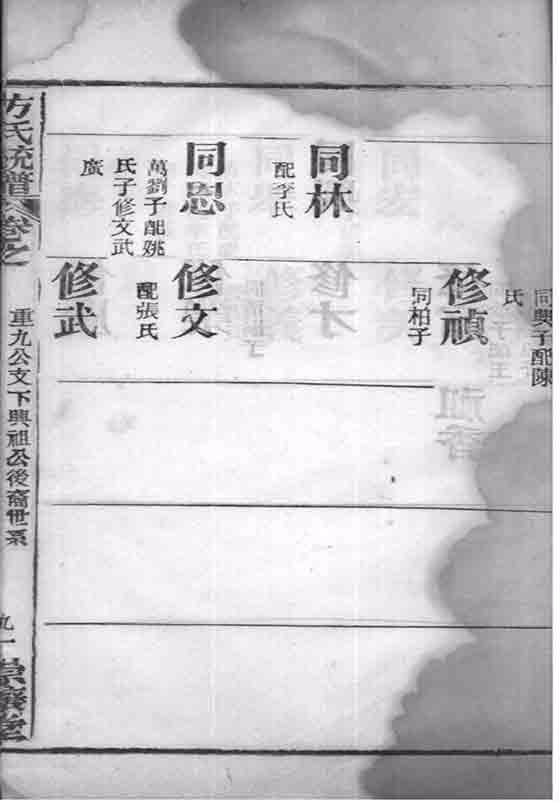 同興子配陳
氏
修禎
同柏子
同林
配李氏
同恩
萬劉子配姚
氏子修文武
廣
修文
配張氏
修武
方氏統譜
卷之
重九公文下興祖公後裔世系
九
一